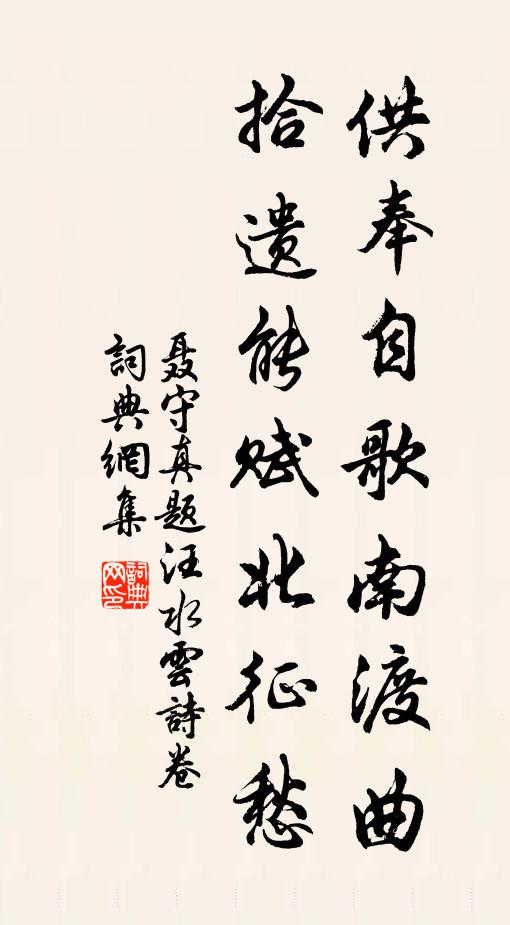 供奉自歌南渡曲
拾遗能赋北征愁
聂守真题汪水雲詩卷
詞典網集
詞典
网印